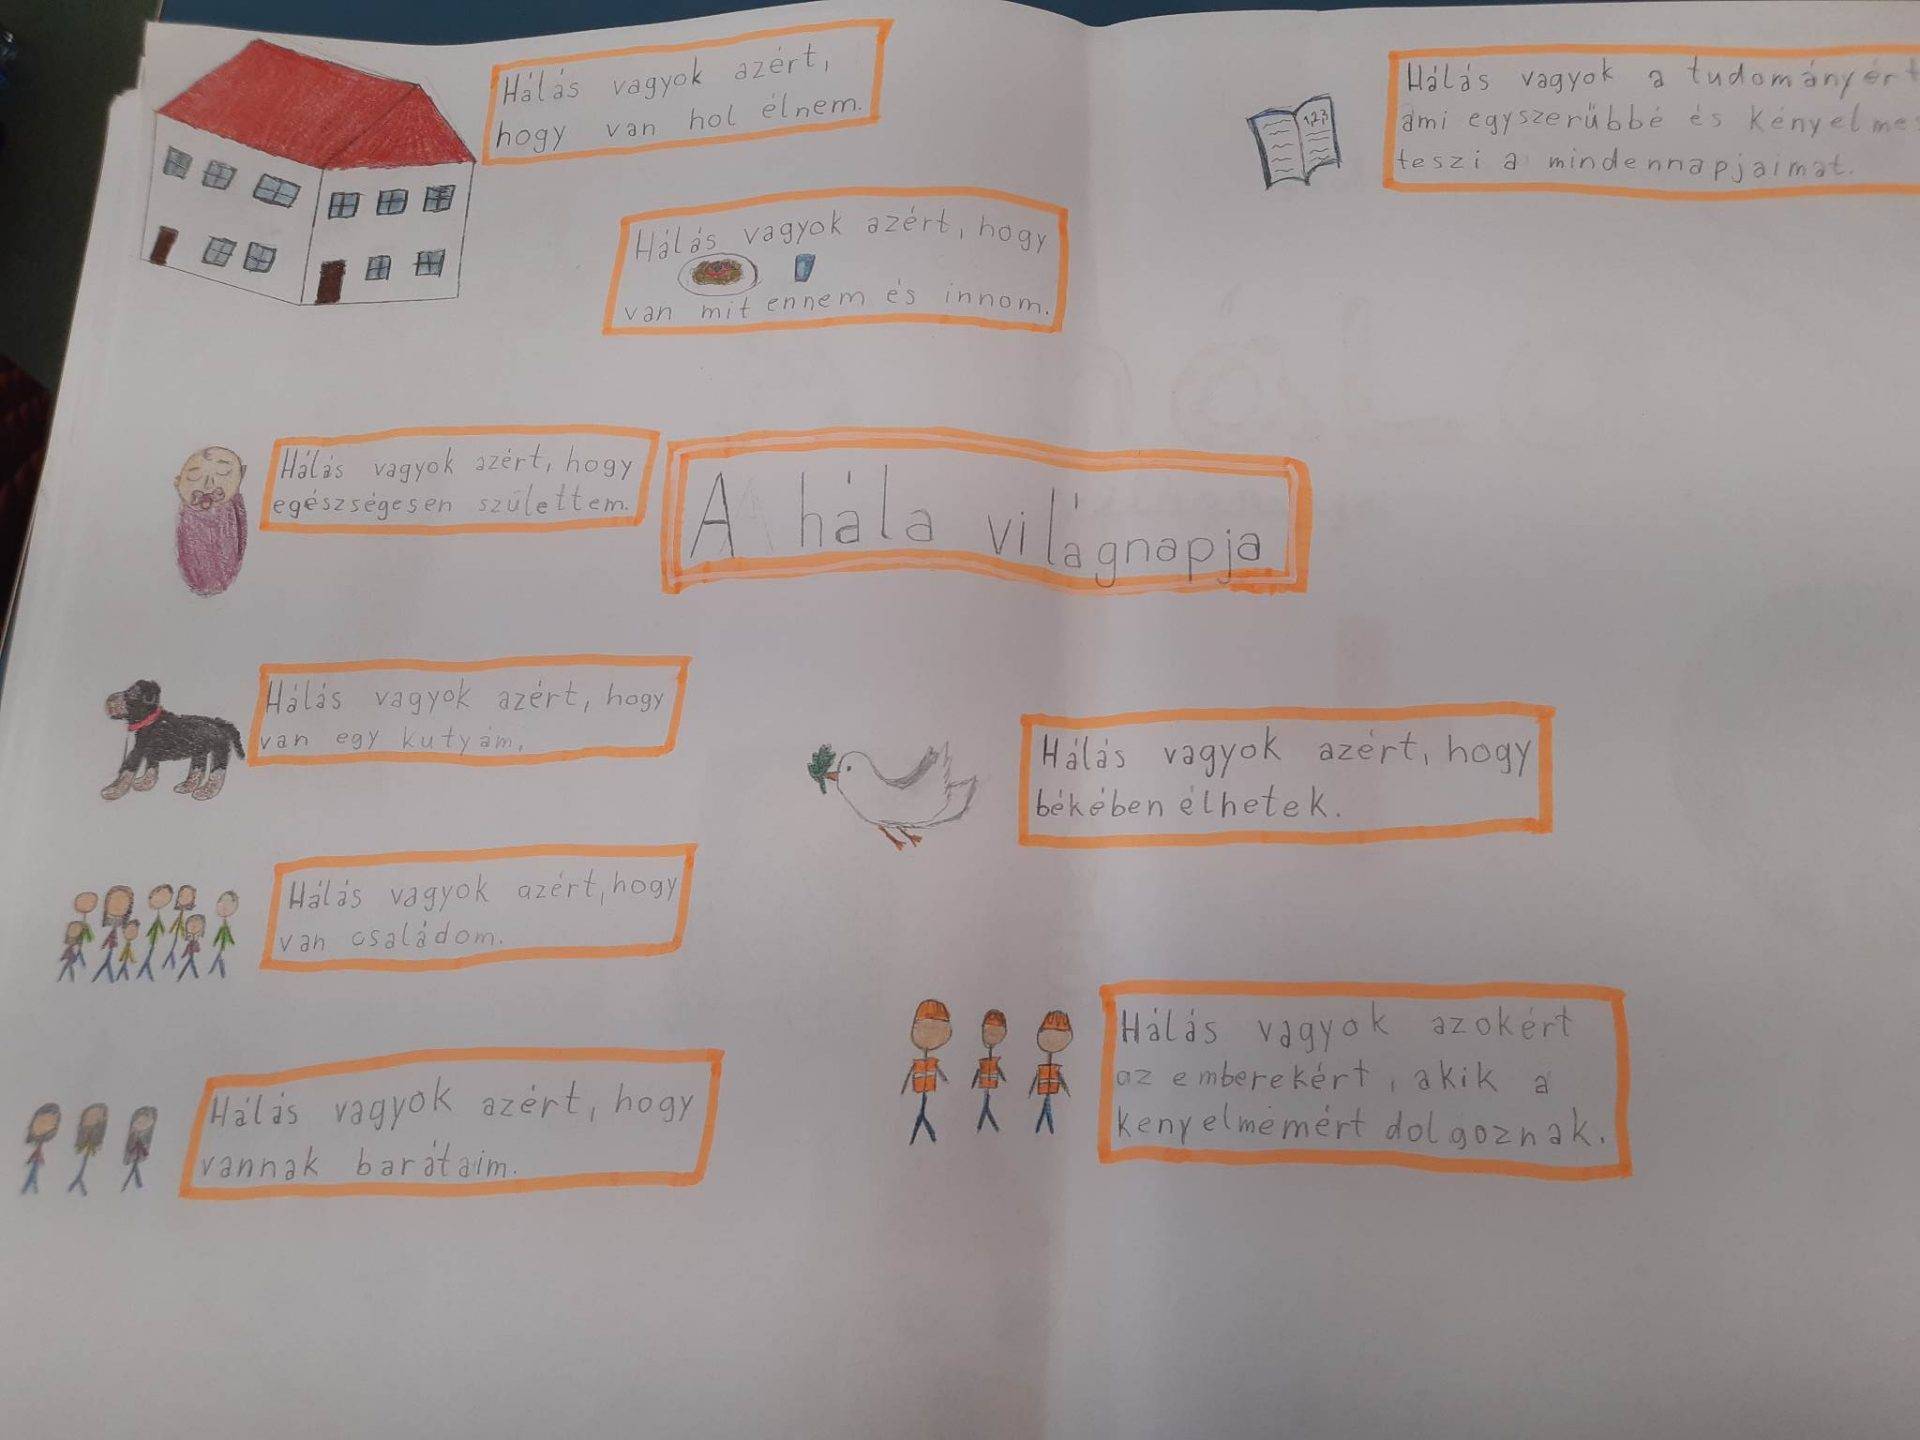 Hálás vagyok azért,
hogy van hol élnem.
Hálás vagyok azért, hogy
van mit ennem és innom.
123
Hálás vagyok a tudományért
ami egyszerűbbé és kényelmes
teszi a mindennapjaimat.
Hálás vagyok azért, hogy
egészségesen születtem.
A hála világnapja
Hálás vagyok azért, hogy
van egy kutyám.
Hálás vagyok azért, hogy
békében élhetek.
Hálás vagyok azért, hogy
van családom.
Hálás vagyok azokért
az emberekért, akik a
kényelmemért dolgoznak.
Hálás vagyok azért, hogy
vannak barátaim.